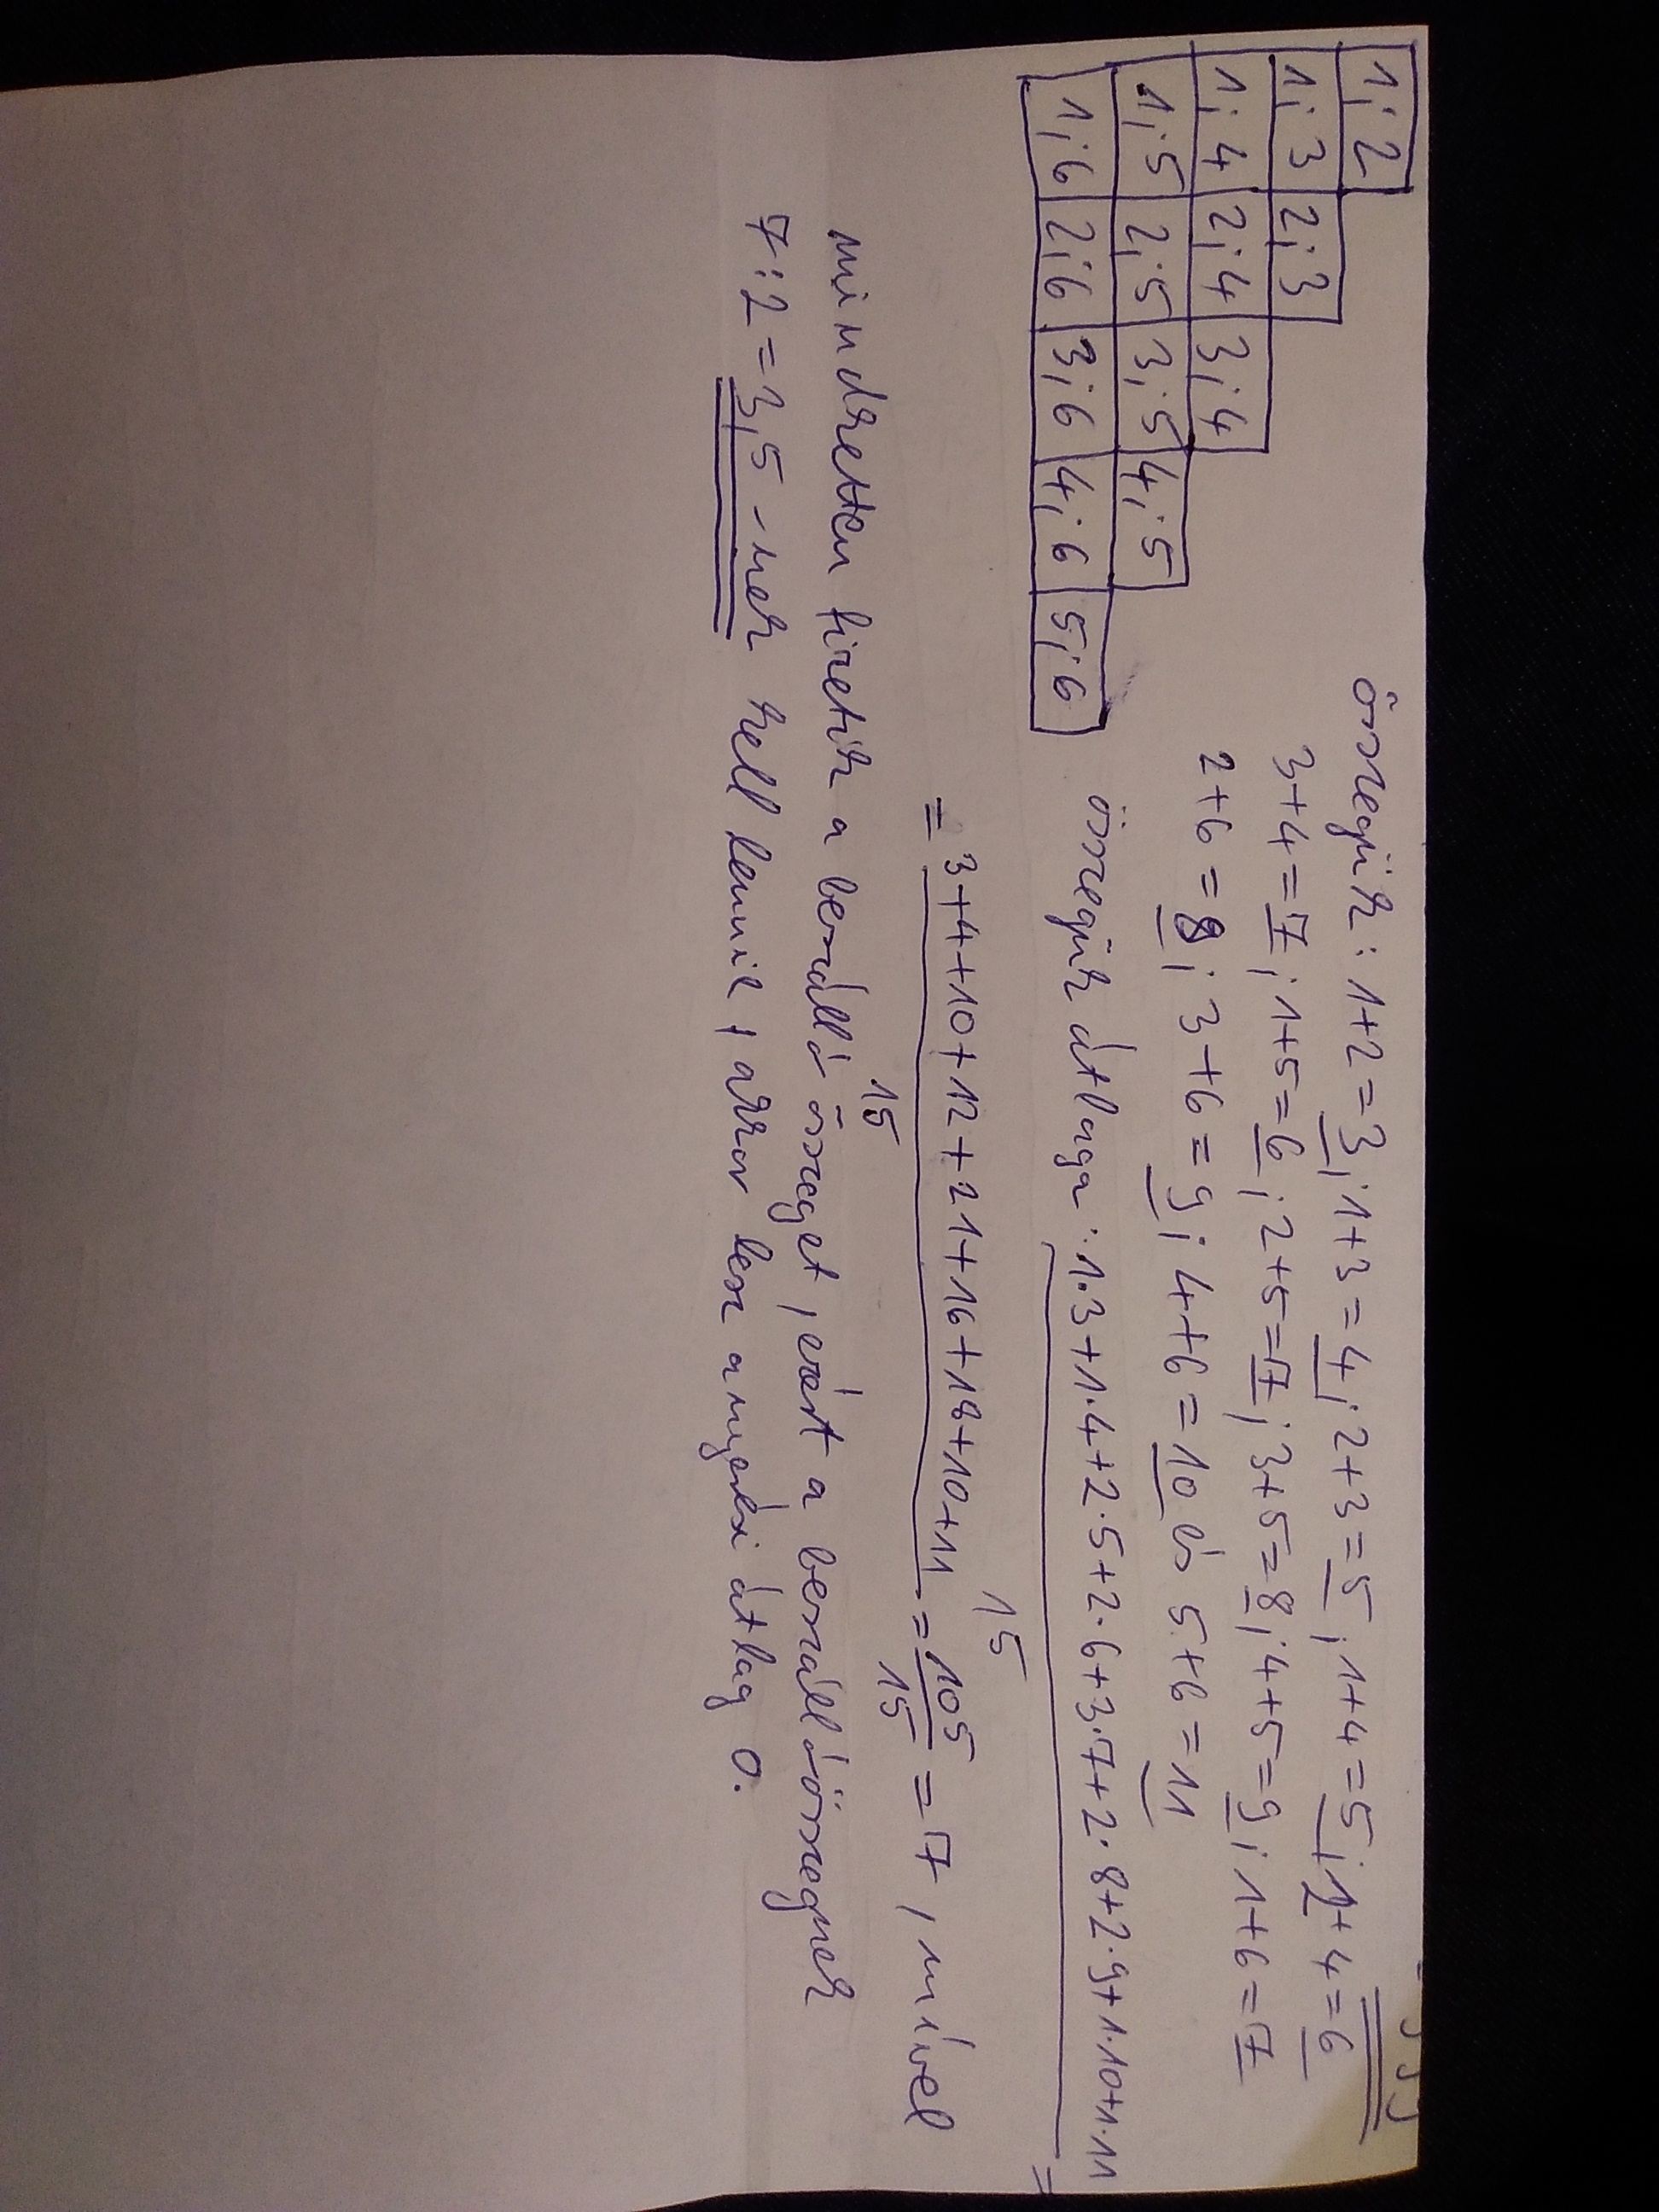 1; 2
1; 3 2; 3
1; 4 2; 4 3; 4
1; 5 2; 5 3; 5 4; 5
1; 6 2; 6 3; 6 4; 6 5; 6
összegük: 1+2=3; 1+3=4; 2+3=5; 1+4=5; 2+4=6
3+4=7; 1+5=6; 2+5=7; 3+5=8; 4+5=9; 1+6=7
2+6=8; 3+6=9; 4+6=10 és 5+6=11
összegük átlaga: 1·3+1·4+2·5+2·6+3·7+2·8+2·9+1·10+1·11 =
15
= 3+4+10+12+21+16+18+10+11 = 105 = 7, mivel
15 15
mindketten fizetik a beszálló összeget, ezért a beszállóösszegnek
7:2=3,5-nek kell lennie, akkor lesz a nyerési átlag 0.